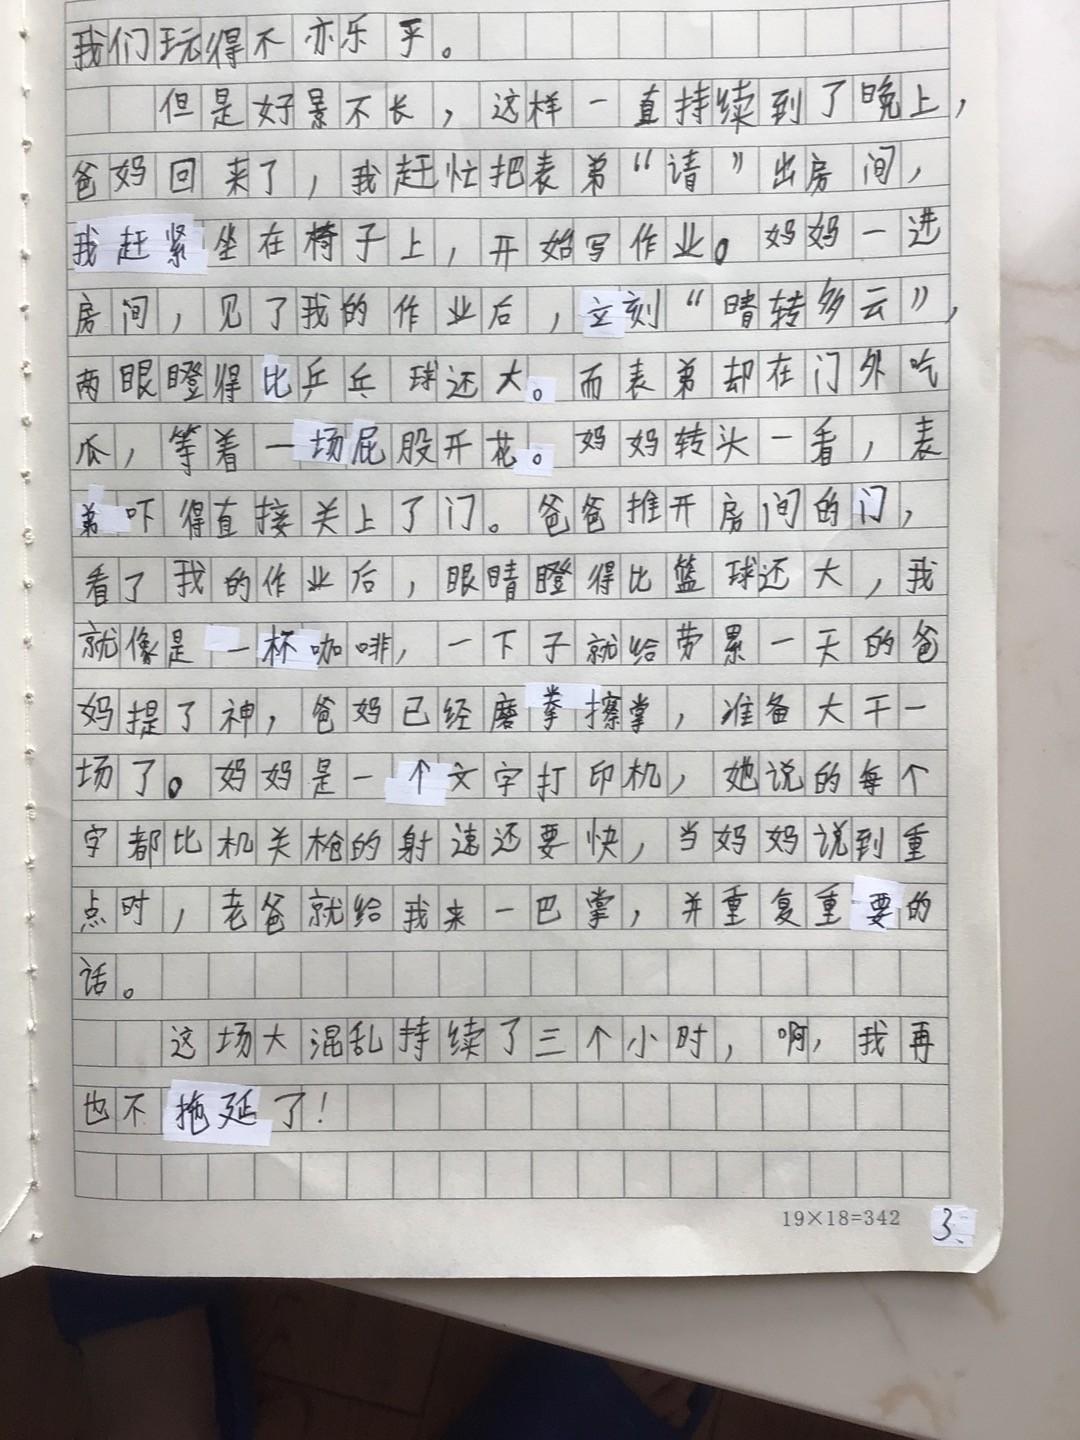 我们玩得不亦乐乎。
但是好景不长，这样一直持续到了晚上，
爸妈回来了，我赶忙把表弟“请”出房间，
我赶紧坐在椅子上，开始写作业。妈妈一进
房间，见了我的作业后，立刻“晴转多云”，
两眼瞪得比乒乓球还大。而表弟却在门外吃
瓜，等着一场屁股开花。妈妈转头一看，表
弟吓得直接关上了门。爸爸推开房间的门，
看了我的作业后，眼睛瞪得比篮球还大，我
就像是一杯咖啡，一下子就给劳累一天的爸
妈提了神，爸妈已经磨拳擦掌，准备大干一
场了。妈妈是一个文字打印机，她说的每个
字都比机关枪的射速还要快，当妈妈说到重
点时，老爸就给我来一巴掌，并重复重要的
话。
这场大混乱持续了三个小时，啊，我再
也不拖延了！
19×18=342
3、